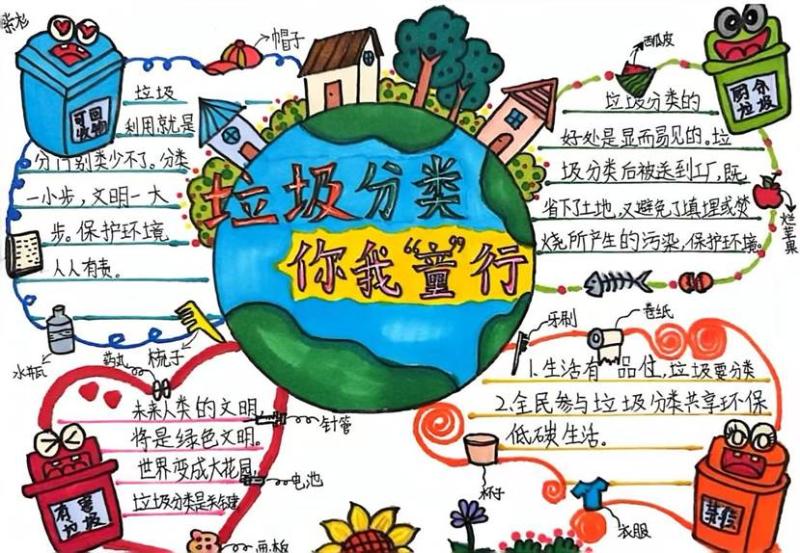 帽子
西瓜皮
可回
收物
厨余
垃圾
垃圾
利用就是
分门别类少不了。分类
一小步，文明一大
步。保护环境
人人有责。
垃圾分类
你我“童”行
垃圾分类的
好处是显而易见的。垃
圾分类后被送到工厂，既
省下了土地，又避免了填埋或焚
烧所产生的污染，保护环境。
烂苹果
水瓶
药丸
梳子
牙刷
卷纸
未来人类的文明
将是绿色文明。
世界变成大花园，
垃圾分类是关键
针管
电池
有害
垃圾
画板
1.生活有一品位，垃圾要分类
2.全民参与垃圾分类共享环保
低碳生活。
杯子
衣服